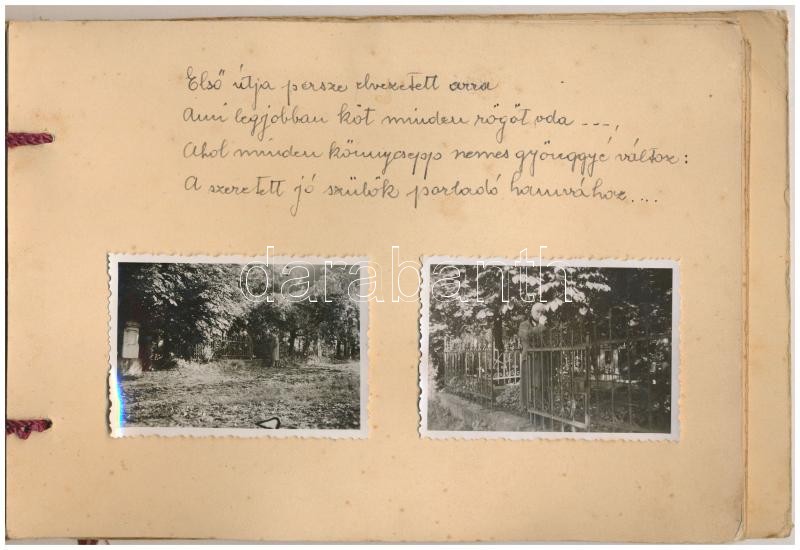 Első útja persze elvezetett arra
Ami legjobban köt minden rögöt oda ---,
Ahol minden könnycsepp nemes gyönggyé változ:
A szeretett jó szülők porladó hamvához....
darabanth